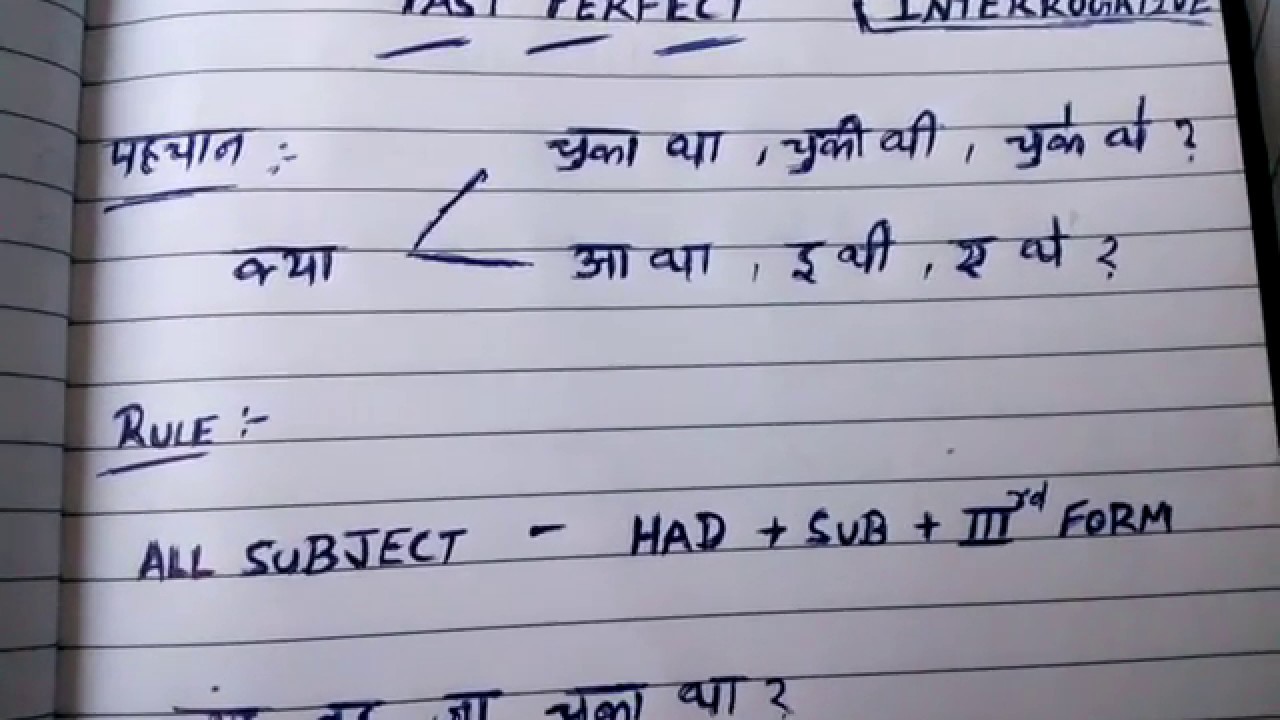 PAST PERFECT [INTERROGATIVE
पहचान :- चुका था , चुकी थी , चुके थे ?
क्या आ था , इ थी , ए थे ?
RULE :-
ALL SUBJECT - HAD + SUB + IIIrd FORM
जा चुका था ?